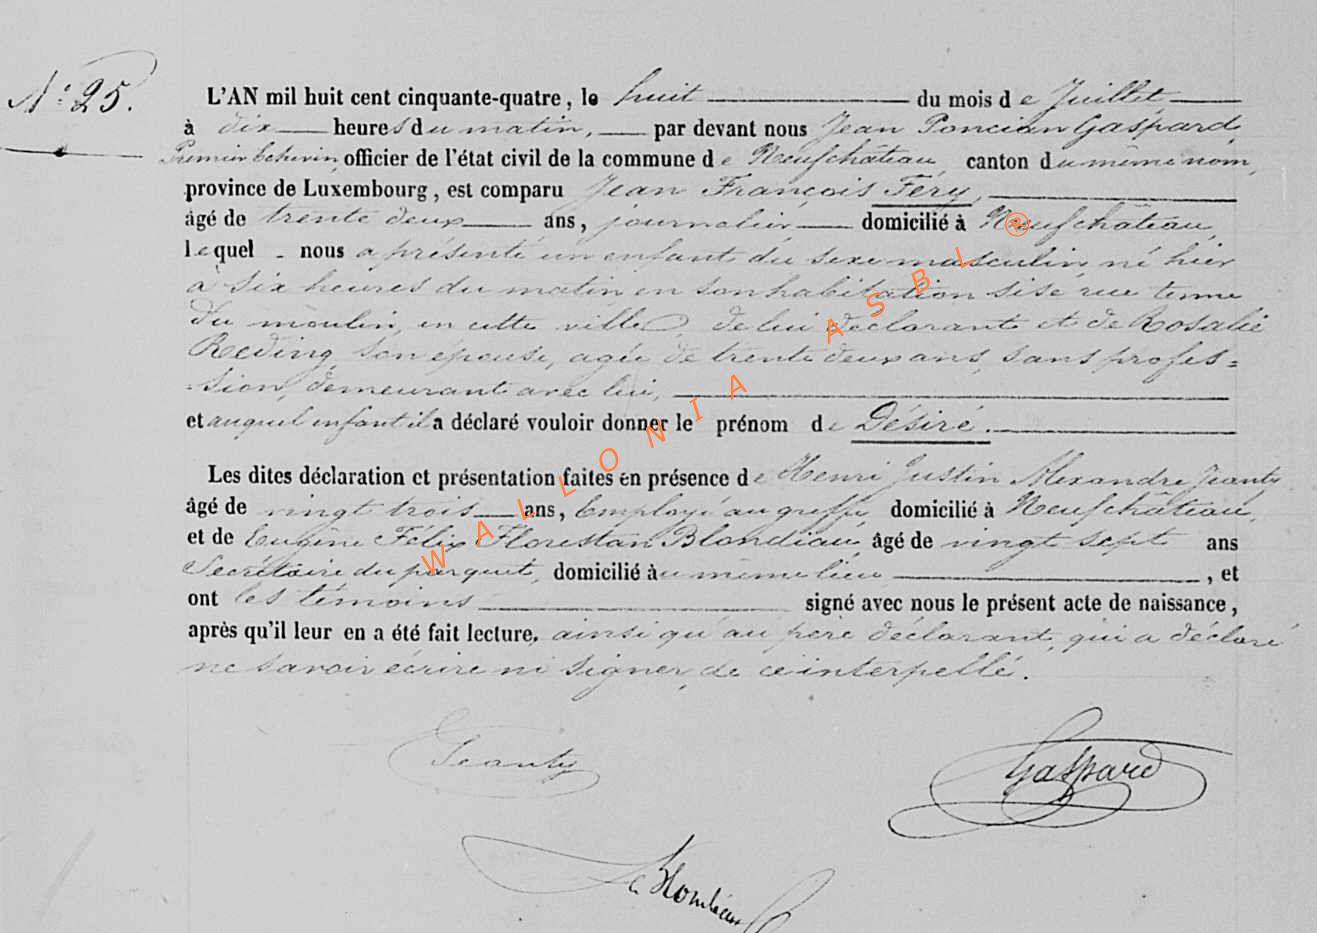 N° 25.
L'AN mil huit cent cinquante-quatre, le huit du mois de Juillet
à dix heures du matin, par devant nous Jean Poncian Gaspard,
Premier Echevin, officier de l'état civil de la commune de Neufchâteau, canton du même nom,
province de Luxembourg, est comparu Jean François Féry,
âgé de trente deux ans, journalier domicilié à Neufchâteau,
lequel nous a présenté un enfant du sexe masculin né hier
à six heures du matin en son habitation sise rue terme
du moulin, en cette ville de lui déclarant et de Rosalie
Reding son épouse, agée de trente deux ans, sans profes=
sion, demeurant avec lui,
et auquel enfant il a déclaré vouloir donner le prénom de Désiré.
Les dites déclaration et présentation faites en présence de Henri Justin Alexandre Jeanty
âgé de vingt trois ans, Employé au greffe, domicilié à Neufchâteau,
et de Eugène Félix Florestan Blondiau, âgé de vingt sept ans
Secrétaire du parquet, domicilié au même lieu , et
ont les témoins signé avec nous le présent acte de naissance,
après qu'il leur en a été fait lecture, ainsi qu'au père déclarant, qui a déclaré
ne savoir écrire ni signer, de ce interpellé.
Jeanty
Gaspard
Blondiau
WALLONIA ASBL ®